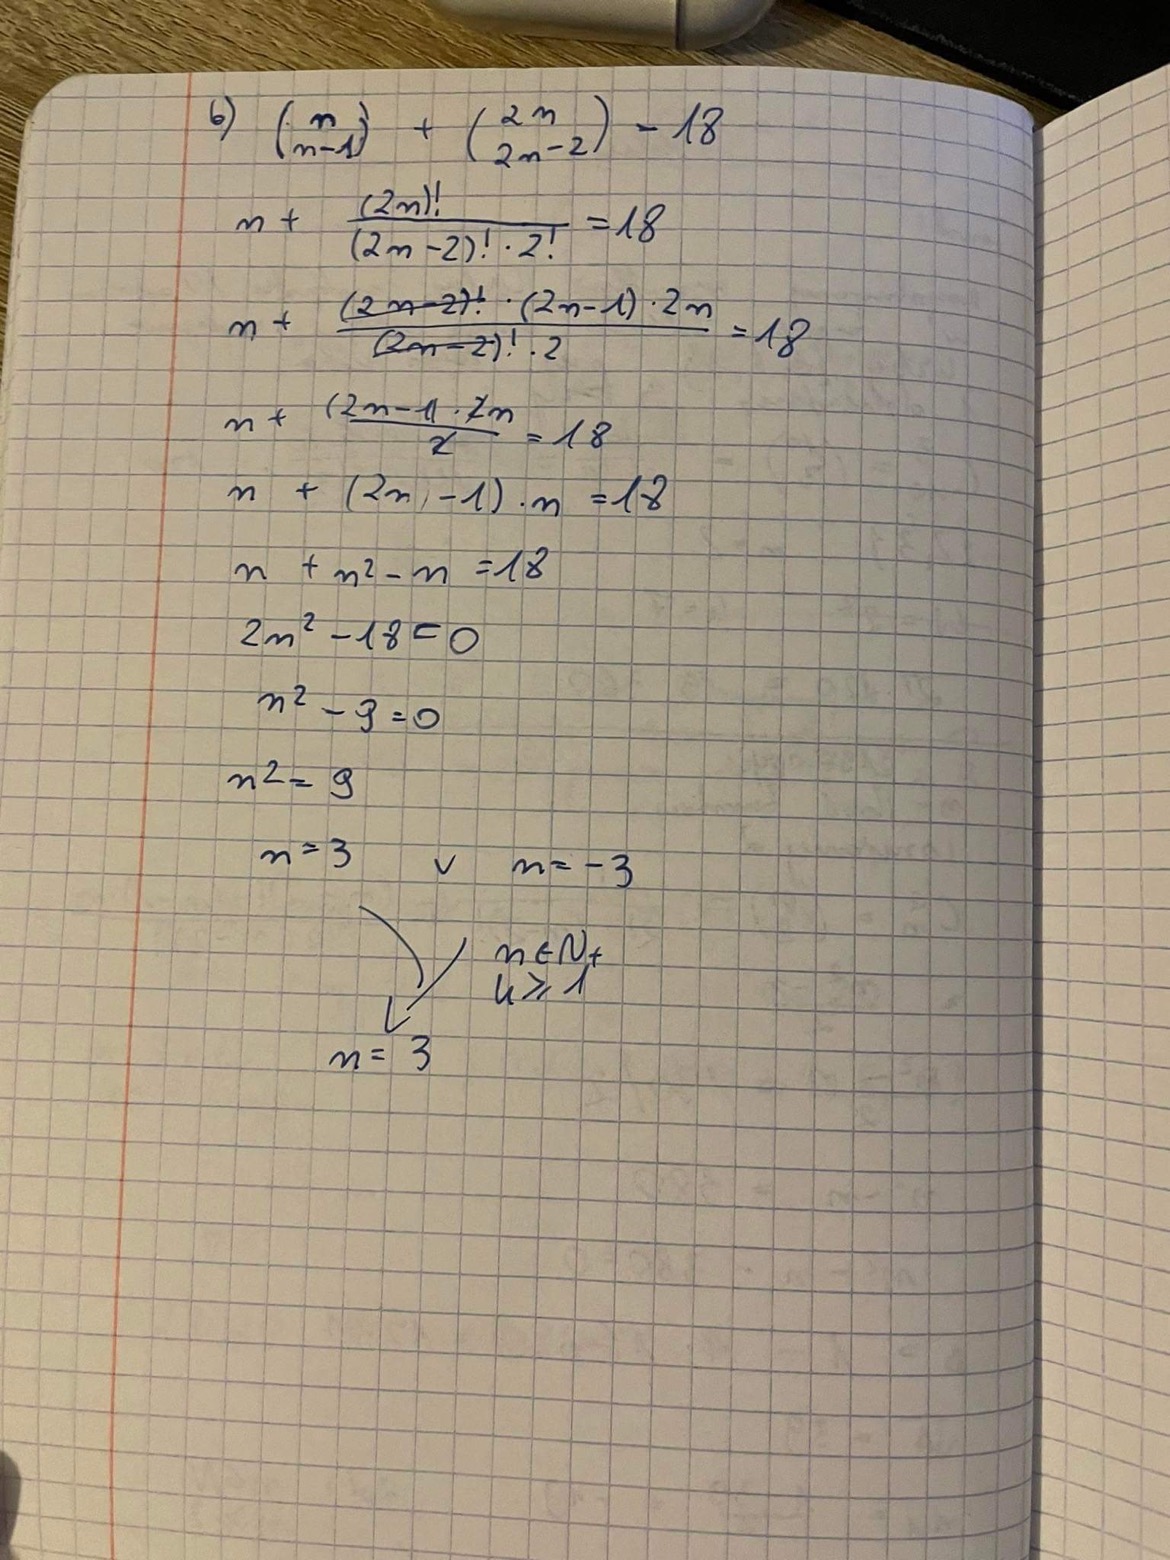 b) (n n-1) + (2n 2n-2) - 18
n + (2n)! / (2n-2)! · 2! = 18
n + (2n-2)! · (2n-1) · 2n / (2n-2)! · 2 = 18
n + (2n-1) · 2n / 2 = 18
n + (2n-1) · n = 18
n + n² - n = 18
2n² - 18 = 0
n² - 9 = 0
n² = 9
n = 3 v n = -3
n ∈ N+
n ≥ 1
n = 3